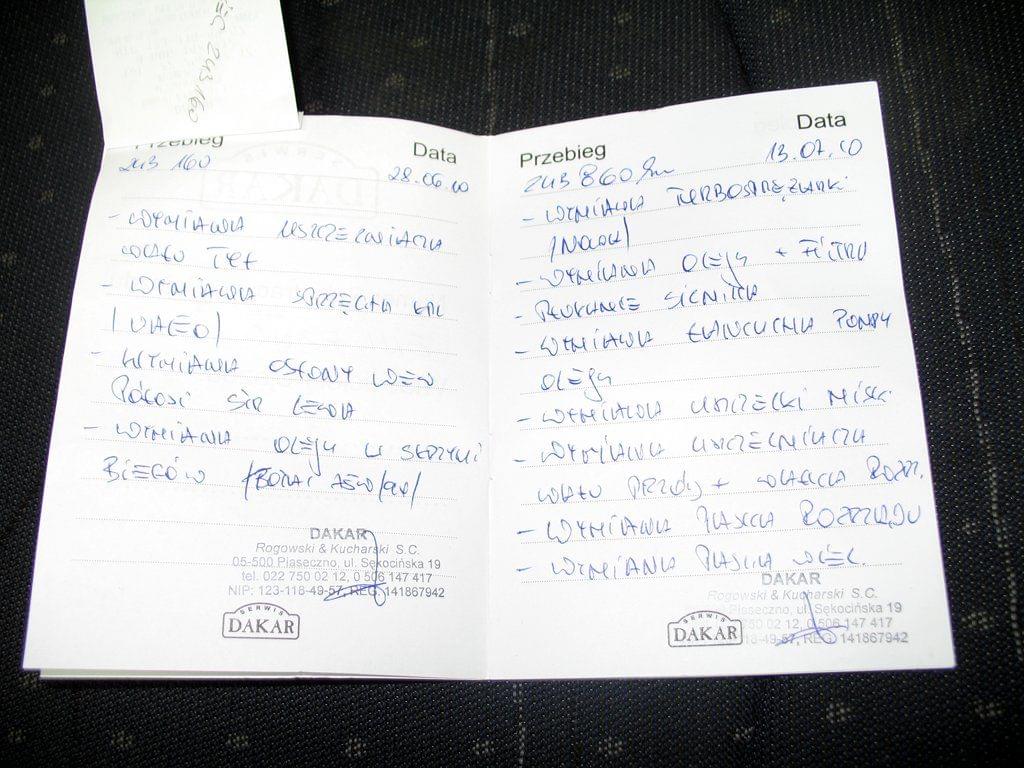 243 160
Przebieg
Data
243 160
28.06.10
- WYMIANA USZCZELNIACZA
WAŁU TYŁ
- WYMIANA SPRZĘGŁA KPL
/VALEO/
- WYMIANA OSŁONY WEW
PÓŁOSI STR LEWA
- WYMIANA OLEJU W SKRZYNI
BIEGÓW
DAKAR
Rogowski & Kucharski S.C.
05-500 Piaseczno, ul. Sękocińska 19
tel. 022 750 02 12, 0 506 147 417
NIP: 123-118-49-57, REG. 141867942
SERWIS
DAKAR
Przebieg
Data
243 860 km
13.07.10
- WYMIANA TURBOSPRĘŻARKI
/NOWA/
- WYMIANA OLEJU + FILTRU
PŁUKANIE SILNIKA
- WYMIANA ŁAŃCUCHA POMPY
OLEJU
- WYMIANA USZCZELKI MISKI
- WYMIANA USZCZELNIACZA
WAŁU PRZÓD + WAŁKA ROZRZ.
- WYMIANA PASKA ROZRZĄDU
- WYMIANA PASKA WIEL.
DAKAR
Rogowski & Kucharski S.C.
Piaseczno, ul. Sękocińska 19
750 02 12, 0 506 147 417
18-49-57, REG. 141867942
SERWIS
DAKAR